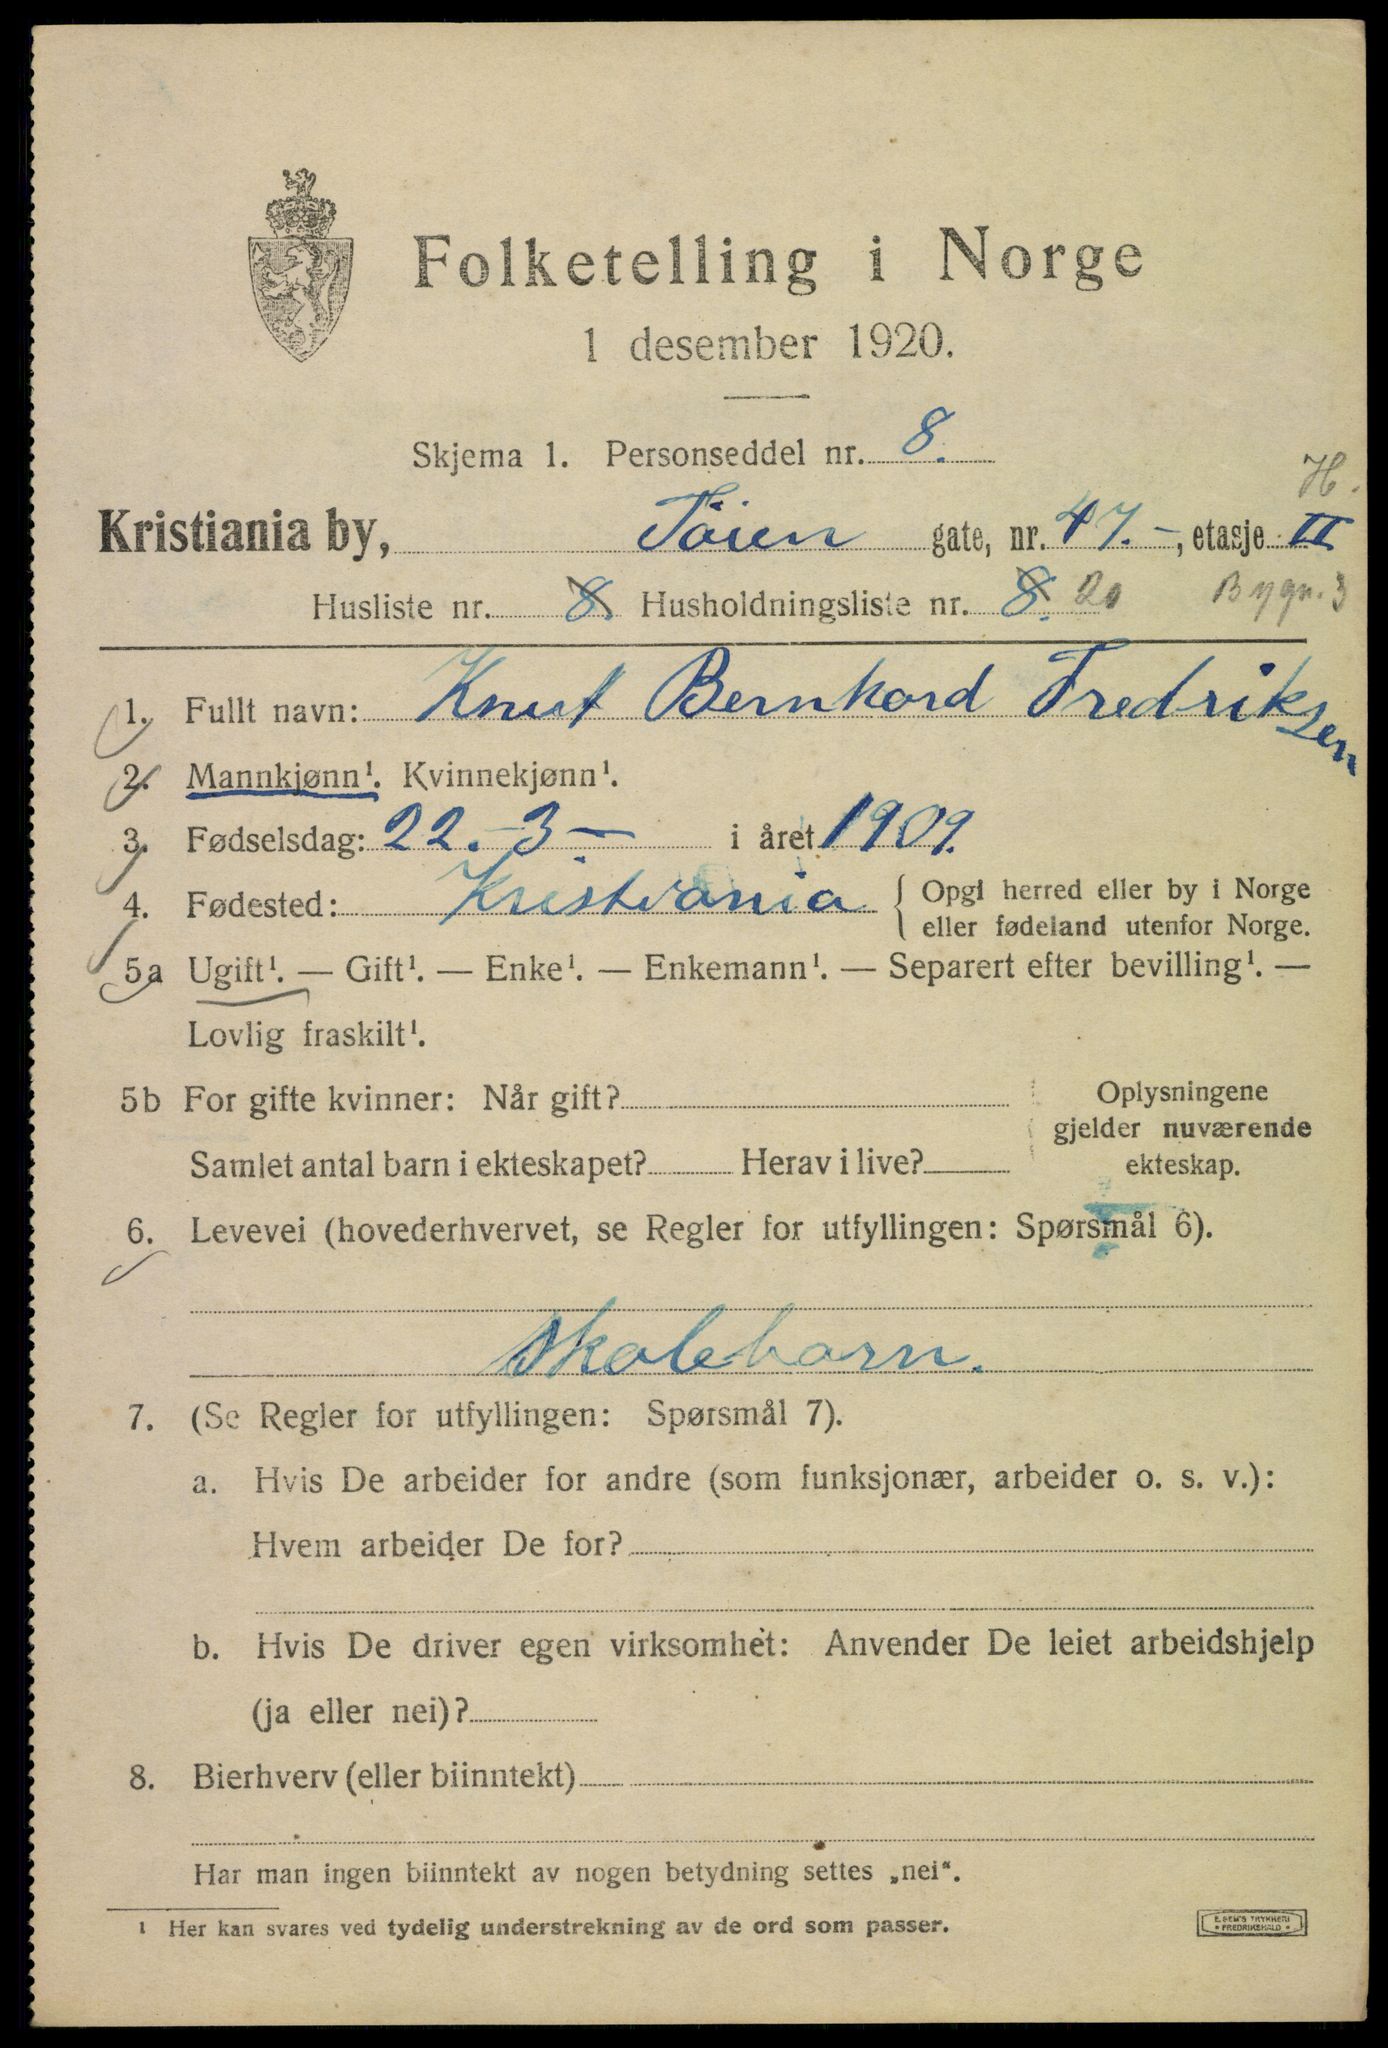 Folketelling i Norge
1 desember 1920.
Skjema 1. Personseddel nr. 8.
H.
Kristiania by, Töien gate, nr. 47.-, etasje II
Husliste nr. 8 Husholdningsliste nr. 8. 20 Bygn. 3
1. Fullt navn: Knut Bernhard Fredriksen
2. Mannkjønn¹. Kvinnekjønn¹.
3. Fødselsdag: 22.-3- i året 1909.
4. Fødested: Kristiania { Opgi herred eller by i Norge
eller fødeland utenfor Norge.
5a Ugift¹. — Gift¹. — Enke¹. — Enkemann¹. — Separert efter bevilling¹. —
Lovlig fraskilt¹.
5b For gifte kvinner: Når gift?
Samlet antal barn i ekteskapet? Herav i live?
Oplysningene
gjelder nuværende
ekteskap.
6. Levevei (hovederhvervet, se Regler for utfyllingen: Spørsmål 6).
Skolebarn.
7. (Se Regler for utfyllingen: Spørsmål 7).
a. Hvis De arbeider for andre (som funksjonær, arbeider o. s. v.):
Hvem arbeider De for?
b. Hvis De driver egen virksomhet: Anvender De leiet arbeidshjelp
(ja eller nei)?
8. Bierhverv (eller biinntekt)
Har man ingen biinntekt av nogen betydning settes „nei“.
¹ Her kan svares ved tydelig understrekning av de ord som passer.
E. SEM'S TRYKKERI
* FREDRIKSHALD *